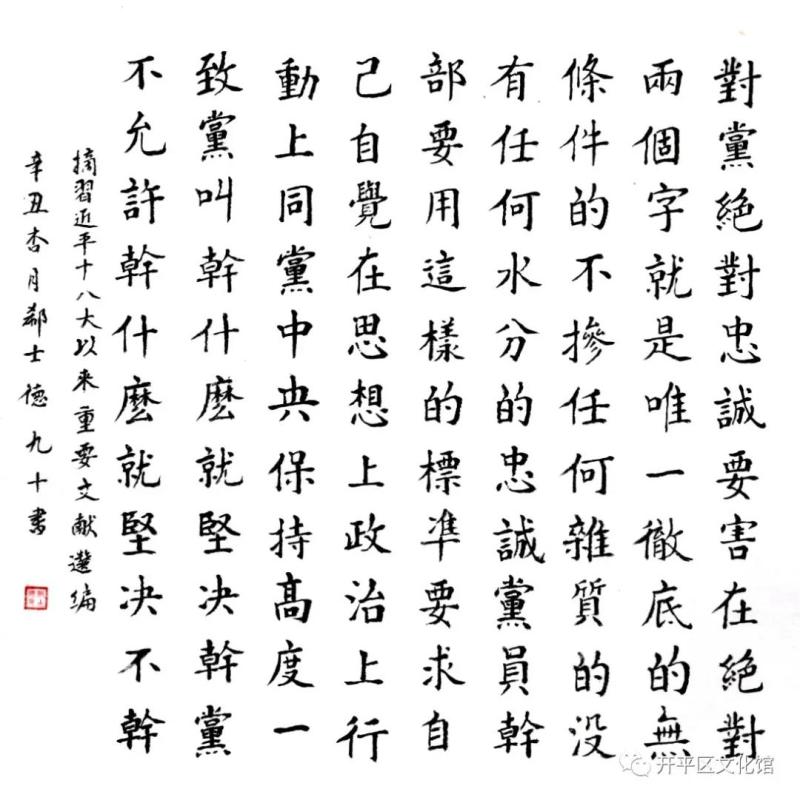 對黨絕對忠誠要害在絕對
兩個字就是唯一徹底的無
條件的不摻任何雜質的没
有任何水分的忠誠黨員幹
部要用這樣的標準要求自
己自覺在思想上政治上行
動上同黨中央保持高度一
致黨叫幹什麽就堅决幹黨
不允許幹什麽就堅决不幹
摘習近平十八大以来重要文献選编
辛丑杏月鄒士德九十書
开平区文化馆